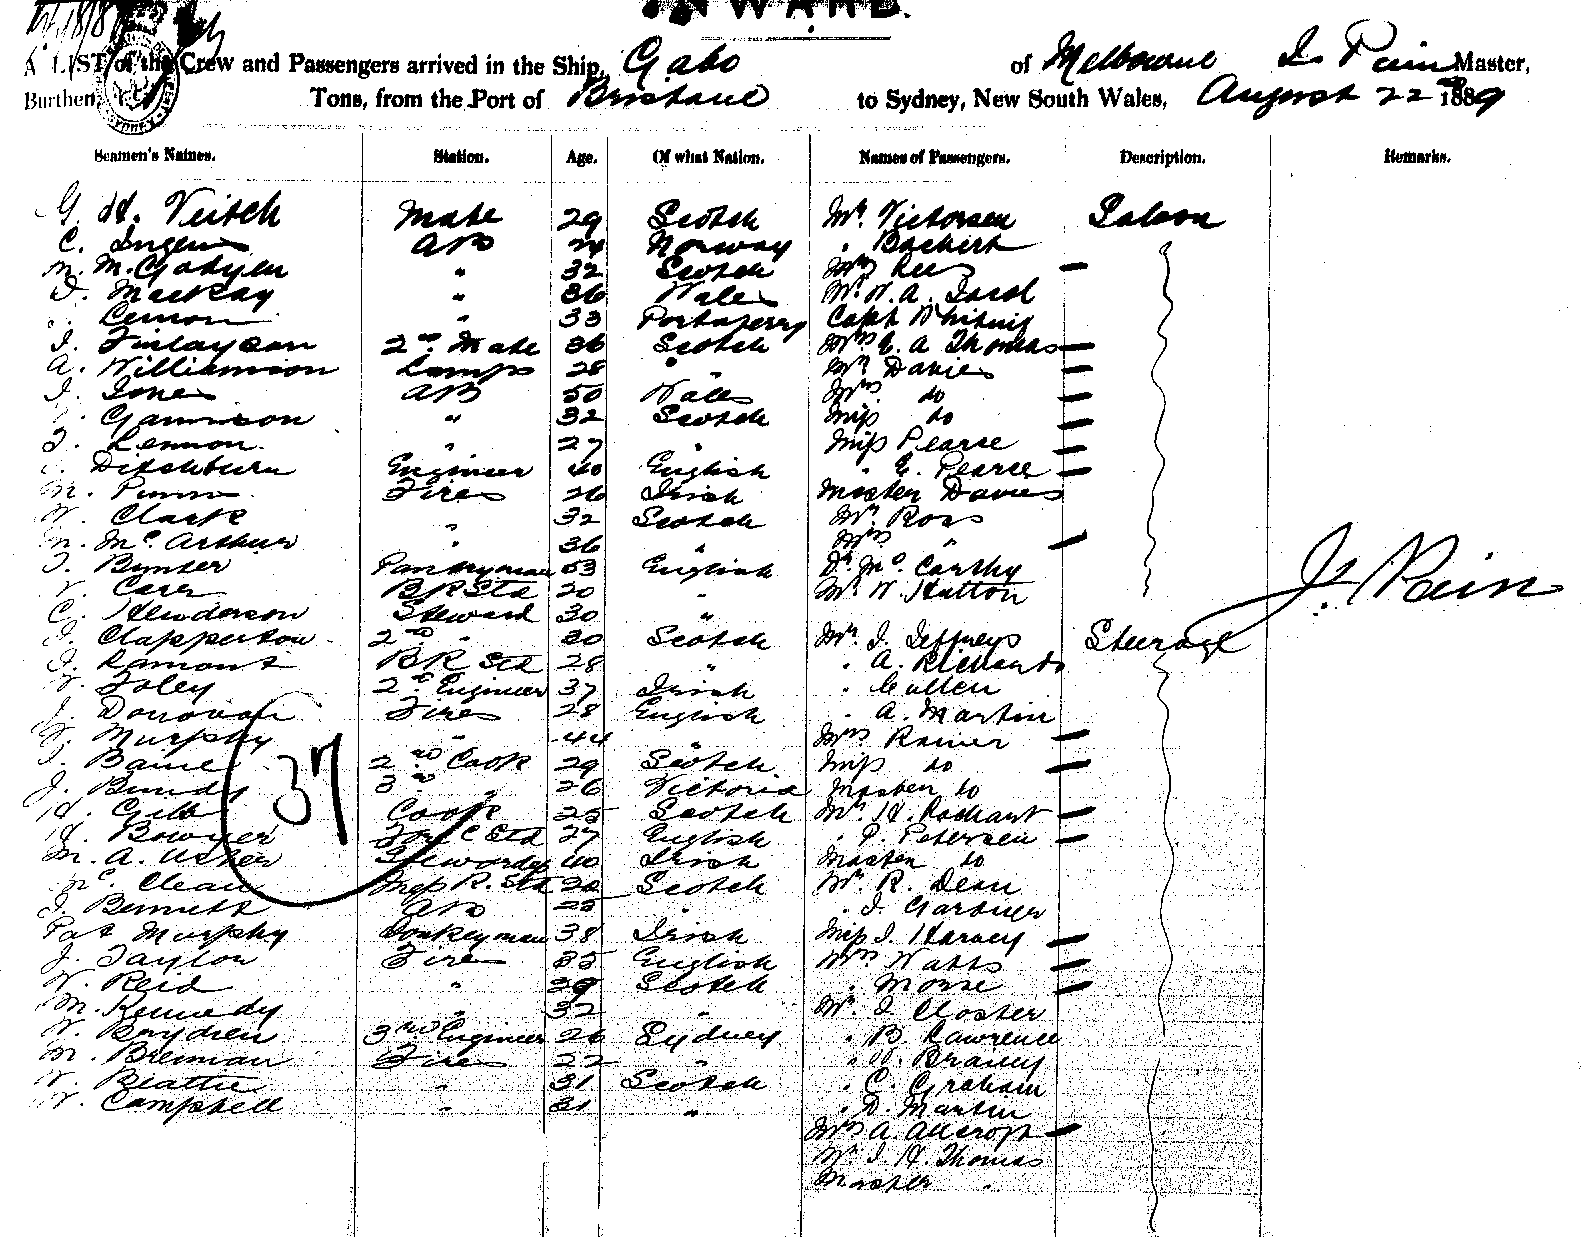 INWARD.
A LIST of the Crew and Passengers arrived in the Ship, Gabo of Melbourne J. Pain Master,
Burthen, Tons, from the Port of Brisbane to Sydney, New South Wales, August 22nd 1889
Seamen's Names. Station. Age. Of what Nation. Names of Passengers. Description. Remarks.
G. H. Veitch Mate 29 Scotch Mr. Victorsen Saloon
C. AB 24 Norway " Backirk
M. " 32 Scotch Mrs Rees —
D. MacKay " 36 Wales Mr. W. A.
Lemon " 33 Capt Whiting
J. Finlayson 2nd Mate 36 Scotch Mrs E. A Thomas —
A. Williamson Lamps 28 " Mr. Davies —
J. Jones AB 50 Wales Mrs do —
Garrison " 32 Scotch Miss do —
Lennon. " 27 " Miss Pearse —
Ditchburn Engineer 40 English " E. Pearse —
M. Fires 26 Irish Master Davies
W. Clark " 32 Scotch Mr. Ross
M. McArthur " 36 " Mrs " —
Pantryman 53 English Dr. McCarthy
W. Carr BR Std 20 " Mr. W. Hutton
C. Henderson Steward 30 "
J. Clapperton 2nd " 30 Scotch Mr. J. Jeffreys Steerage
J. Lamont BR Std 28 " " A. Richards
W. Foley 2nd Engineer 37 Irish " Cullen
J. Donovan Fires 28 English " A. Martin
Murphy " 44 " Mrs Rainer —
2nd Cook 29 Scotch. Miss do —
J. Bundy 3rd " 26 Victoria Master do
H. Gibb Cook 25 Scotch Mrs H. —
H. Bowyer 27 English " P. Petersen —
M. A. Usher Stewardess 40 Irish Master do
McClean Mess R. Std 20 Scotch Mr. R. Dean
J. Bennett AB 25 " " J. Gardner
Pat Murphy Donkeyman 38 Irish Miss J. Harvey —
J. Taylor Fires 35 English Mrs Watts —
W. Reid " 29 Scotch " Morse —
M. Kennedy " 32 " Mr. J Closter
W. 3rd Engineer 26 Sydney " B. Lawrence
M. Brennan Fires 22 " " W.
W. Beattie " 31 Scotch " C. Graham
W. Campbell " 31 " " D. Martin
Mrs A. Allcroft —
Mr. J. H. Thomas
Master "
37
J. Pain